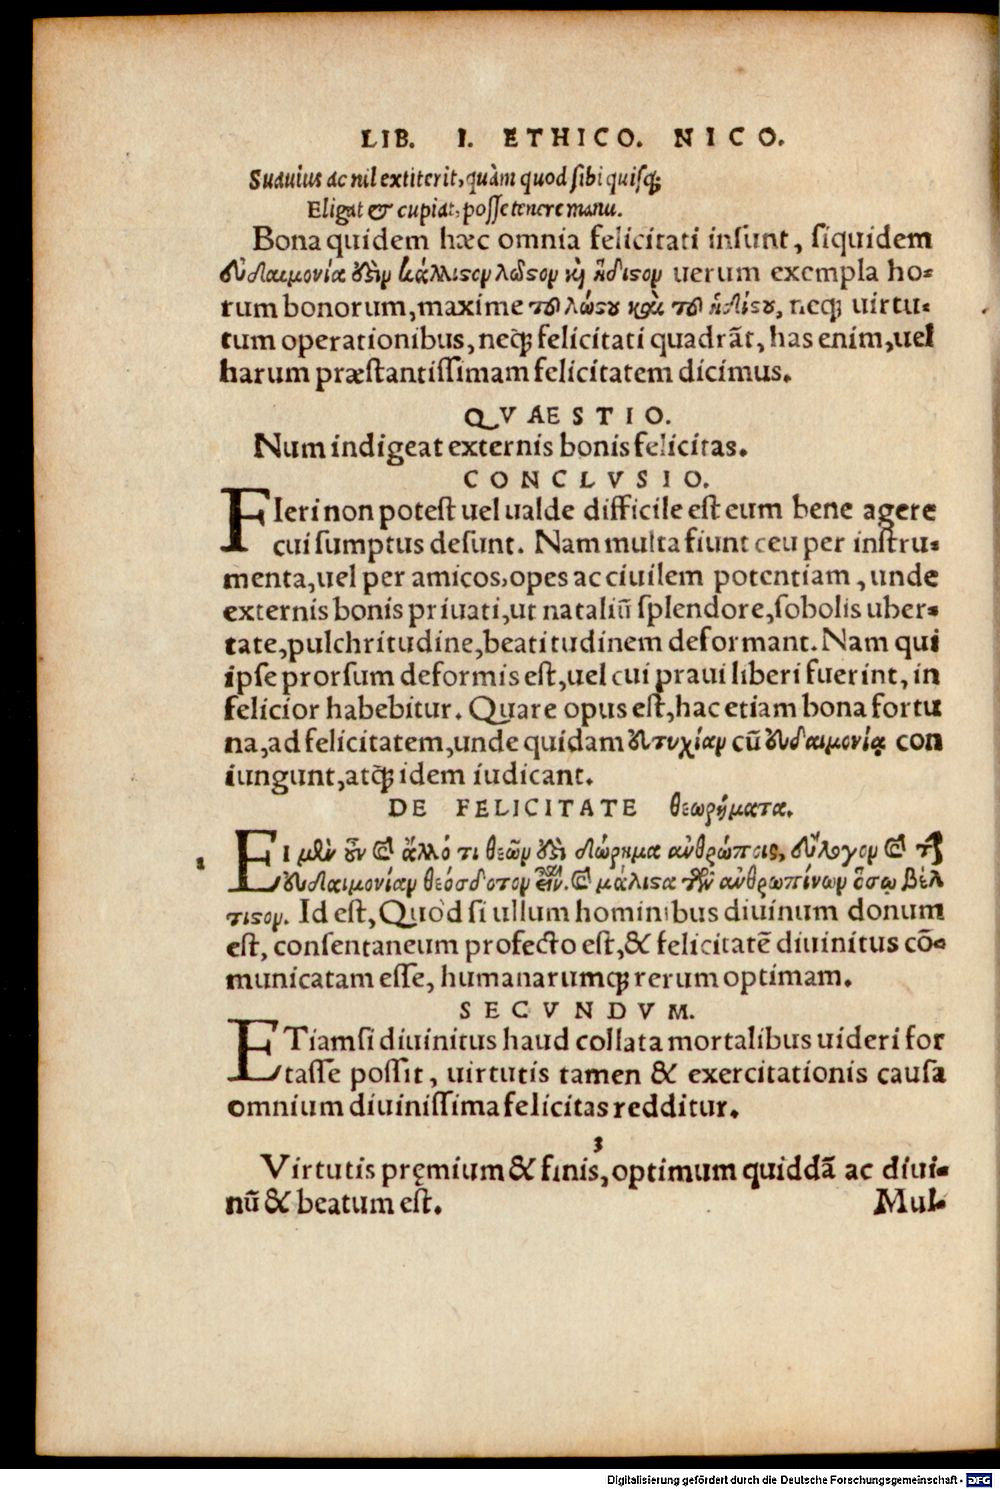 LIB. I. ETHICO. NICO.
Suauius ac nil extiterit, quàm quod sibi quisq;
Eligat & cupiat, posse tenere manu.
Bona quidem hæc omnia felicitati insunt, siquidem
εὐδαιμονία ἐστὶν κάλλιστον λῶστον καὶ ἥδιστον uerum exempla ho-
rum bonorum, maxime τοῦ λώστου καὶ τοῦ ἡδίστου, neq; uirtu-
tum operationibus, neq; felicitati quadrãt, has enim, uel
harum præstantissimam felicitatem dicimus.
QVAESTIO.
Num indigeat externis bonis felicitas.
CONCLVSIO.
FIeri non potest uel ualde difficile est eum bene agere
cui sumptus desunt. Nam multa fiunt ceu per instru-
menta, uel per amicos, opes ac ciuilem potentiam, unde
externis bonis priuati, ut nataliũ splendore, sobolis uber-
tate, pulchritudine, beatitudinem deformant. Nam qui
ipse prorsum deformis est, uel cui praui liberi fuerint, in
felicior habebitur. Quare opus est, hac etiam bona fortu
na, ad felicitatem, unde quidam εὐτυχίαν cũ εὐδαιμονίᾳ con
iungunt, atq; idem iudicant.
DE FELICITATE θεωρήματα.
1 EI μὲν οὖν καὶ ἄλλό τι θεῶν ἐστὶ δώρημα ἀνθρώποις, εὔλογον καὶ τὴν
εὐδαιμονίαν θεόσδοτον εἶναι. καὶ μάλιστα τῶν ἀνθρωπίνων ὅσῳ βέλ
τιστον. Id est, Quòd si ullum hominibus diuinum donum
est, consentaneum profecto est, & felicitatẽ diuinitus cõ-
municatam esse, humanarumq; rerum optimam.
SECVNDVM.
ETiamsi diuinitus haud collata mortalibus uideri for
tasse possit, uirtutis tamen & exercitationis causa
omnium diuinissima felicitas redditur.
3
Virtutis pręmium & finis, optimum quiddã ac diui-
nũ & beatum est.
Mul-
Digitalisierung gefördert durch die Deutsche Forschungsgemeinschaft - DFG